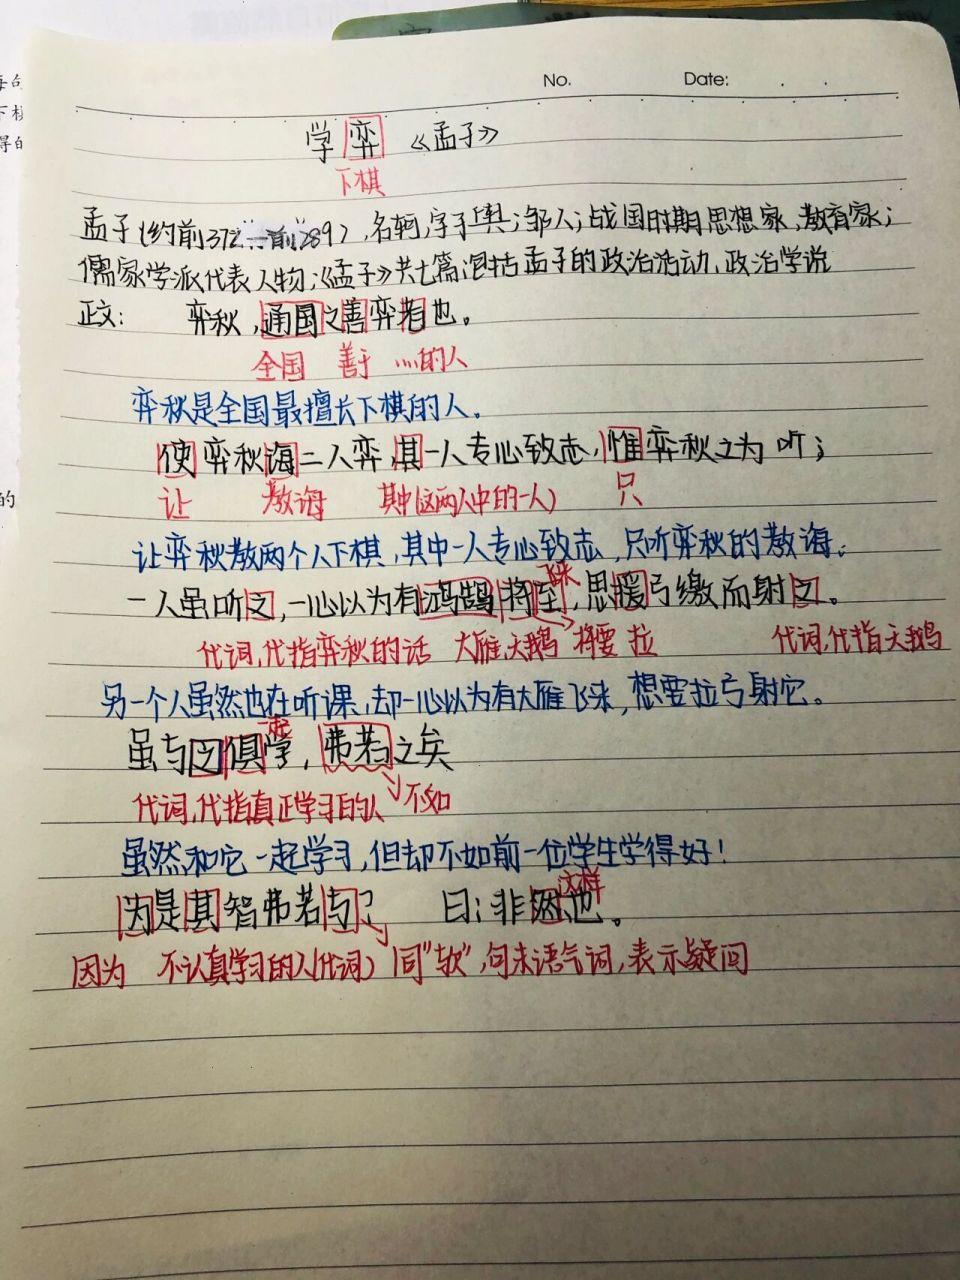 No. Date:
学弈 《孟子》
下棋
孟子(约前372—前289),名轲,字子舆;邹人;战国时期思想家、教育家;
儒家学派代表人物;《孟子》共七篇,包括孟子的政治活动、政治学说
正文: 弈秋,通国之善弈者也。
全国 善于 ……的人
弈秋是全国最擅长下棋的人。
使弈秋诲二人弈,其一人专心致志,惟弈秋之为听;
让 教诲 其中(这两人中的一人) 只
让弈秋教两个人下棋,其中一人专心致志,只听弈秋的教诲。
飞来
一人虽听之,一心以为有鸿鹄将至,思援弓缴而射之。
代词,代指弈秋的话 大雁,天鹅 将要 拉 代词,代指天鹅
另一个人虽然也在听课,却一心以为有大雁飞来,想要拉弓射它。
一起
虽与之俱学,弗若之矣
代词,代指真正学习的人 不如
虽然和它一起学习,但却不如前一位学生学得好!
这样
为是其智弗若与? 曰:非然也。
因为 不认真学习的人(代词) 同“欤”,句末语气词,表示疑问